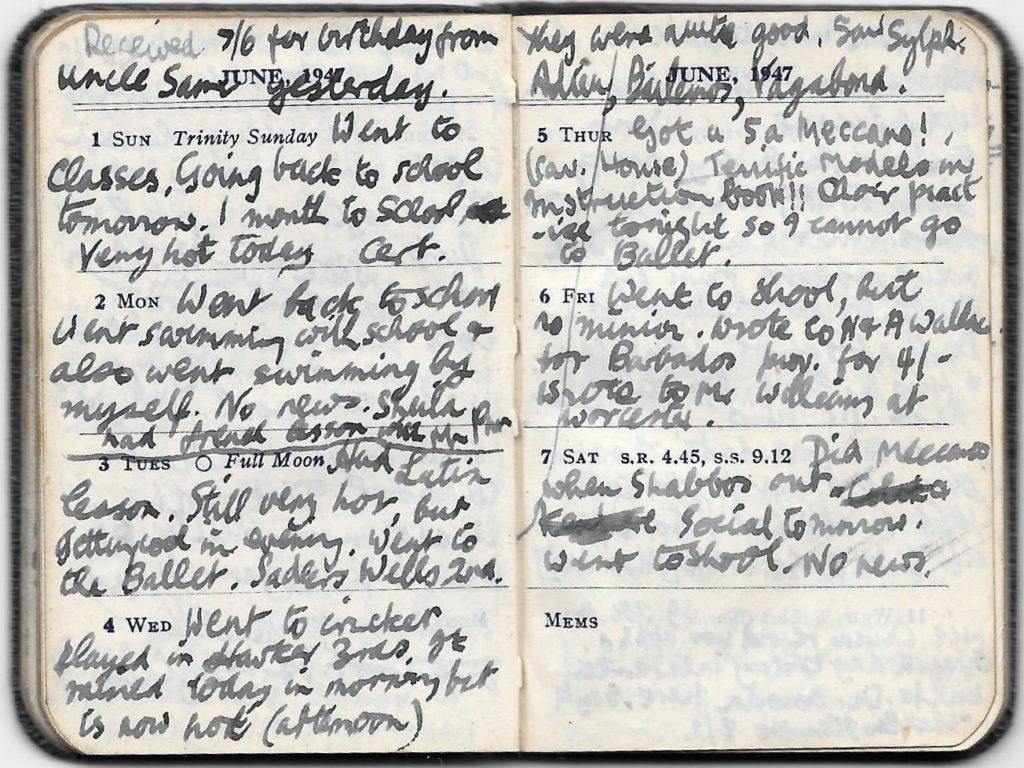 Received 7/6 for birthday from
Uncle Sam yesterday.
JUNE, 1947
1 SUN Trinity Sunday Went to
classes. Going back to school
tomorrow. 1 month to School
Very hot today Cert.
2 MON Went back to school
Went swimming with school &
also went swimming by
myself. No news. Sheila
had french lesson with Mr
3 TUES Full Moon Had Latin
lesson. Still very hot, but
getting cool in evening. Went to
the Ballet. Sadlers Wells 2nd.
4 WED Went to cricket
played in Hawker 3rds. It
rained today in morning but
is now hot (afternoon)
They were quite good. Saw Sylph.
JUNE, 1947
Adieu, Vagabond.
5 THUR Got a 5a Meccano!
(Cav. House) Terrific Models in
Instruction book!! Choir pract
-ise tonight so I cannot go
to Ballet.
6 FRI Went to shool, but
no minion. Wrote to H & A Wallace
for Barbados prov. for 4/-
Wrote to Mr Williams at
Worcester.
7 SAT S.R. 4.45, S.S. 9.12 Did Meccano
when Shabbos out.
Social tomorrow.
Went to shool. No news.
MEMS